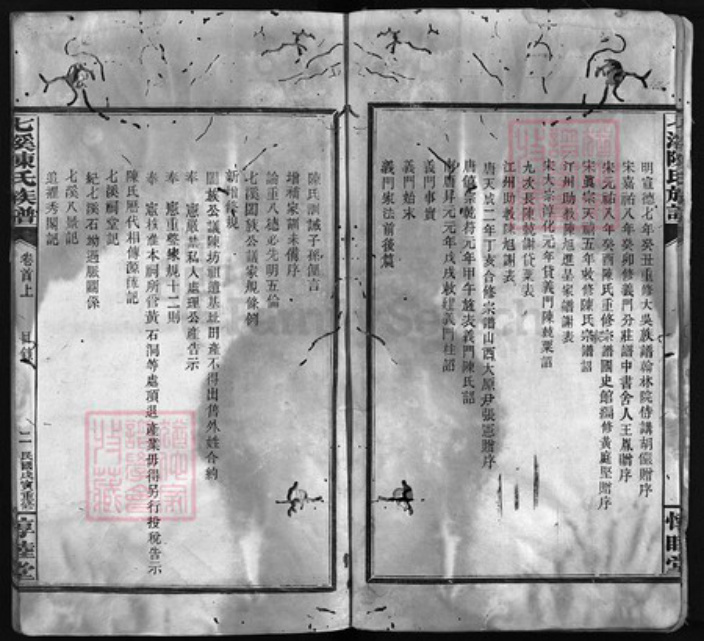 明宣德七年癸丑重修大吳族譜翰林院侍講胡儼贈序
宋嘉祐八年癸卯修義門分莊譜中書舍人王胤贈序
宋元祐八年癸酉陳氏重修宗譜國史館編修黃庭堅贈序
宋真宗天禧五年敕修陳氏宗譜詔
江州助教陳旭進呈家譜謝表
宋太宗淳化元年貸義門陳兢粟詔
九次長陳兢謝貸粟表
江州助教陳旭謝表
唐天成二年丁亥合修宗譜山西大原尹張憲贈序
唐僖宗乾符元年甲午旌表義門陳氏詔
南唐昇元元年戊戌敕建義門柱詔
義門事實
義門始末
義門家法前後篇
陳氏訓誡子孫便言
增補家訓未備序
論重八德必先明五倫
七溪闔族公議家規條例
新增後規
闔族公議陳坊祖遺基址田產不得出售外姓合約
奉 憲嚴禁私人處理公產告示
奉 憲重整家規十二則
奉 憲核准本祠所管黃石洞等處項退產業毋得另行投稅告示
陳氏歷代相傳源流記
七溪祠堂記
紀七溪石坳過脈關係
七溪八景記
道裡秀閣記
七溪陳氏族譜
卷首上
目錄
二
民國戊寅重修
惇睦堂